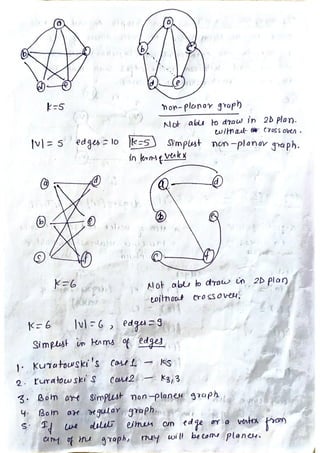 a
b
c
d
e
a
b
c
d
e
K=5
non-planar graph
Not able to draw in 2D plan.
without crossover.
|V| = 5 edges = 10 K=5 Simplest non-planar graph.
in terms of vertex
a d
b e
c f
a d
b e
c f
K=6
Not able to draw in 2D plan
without crossover.
K=6 |V|=6, edges=9
Simplest in terms of edges
1. Kuratowski's case1 - K5
2. Kuratowski's case2 - K3,3
3. Both are simplest non-planer graph
4. Both are regular graph.
5. If we delete either an edge or a vertex from
any of the graph, they will become planer.